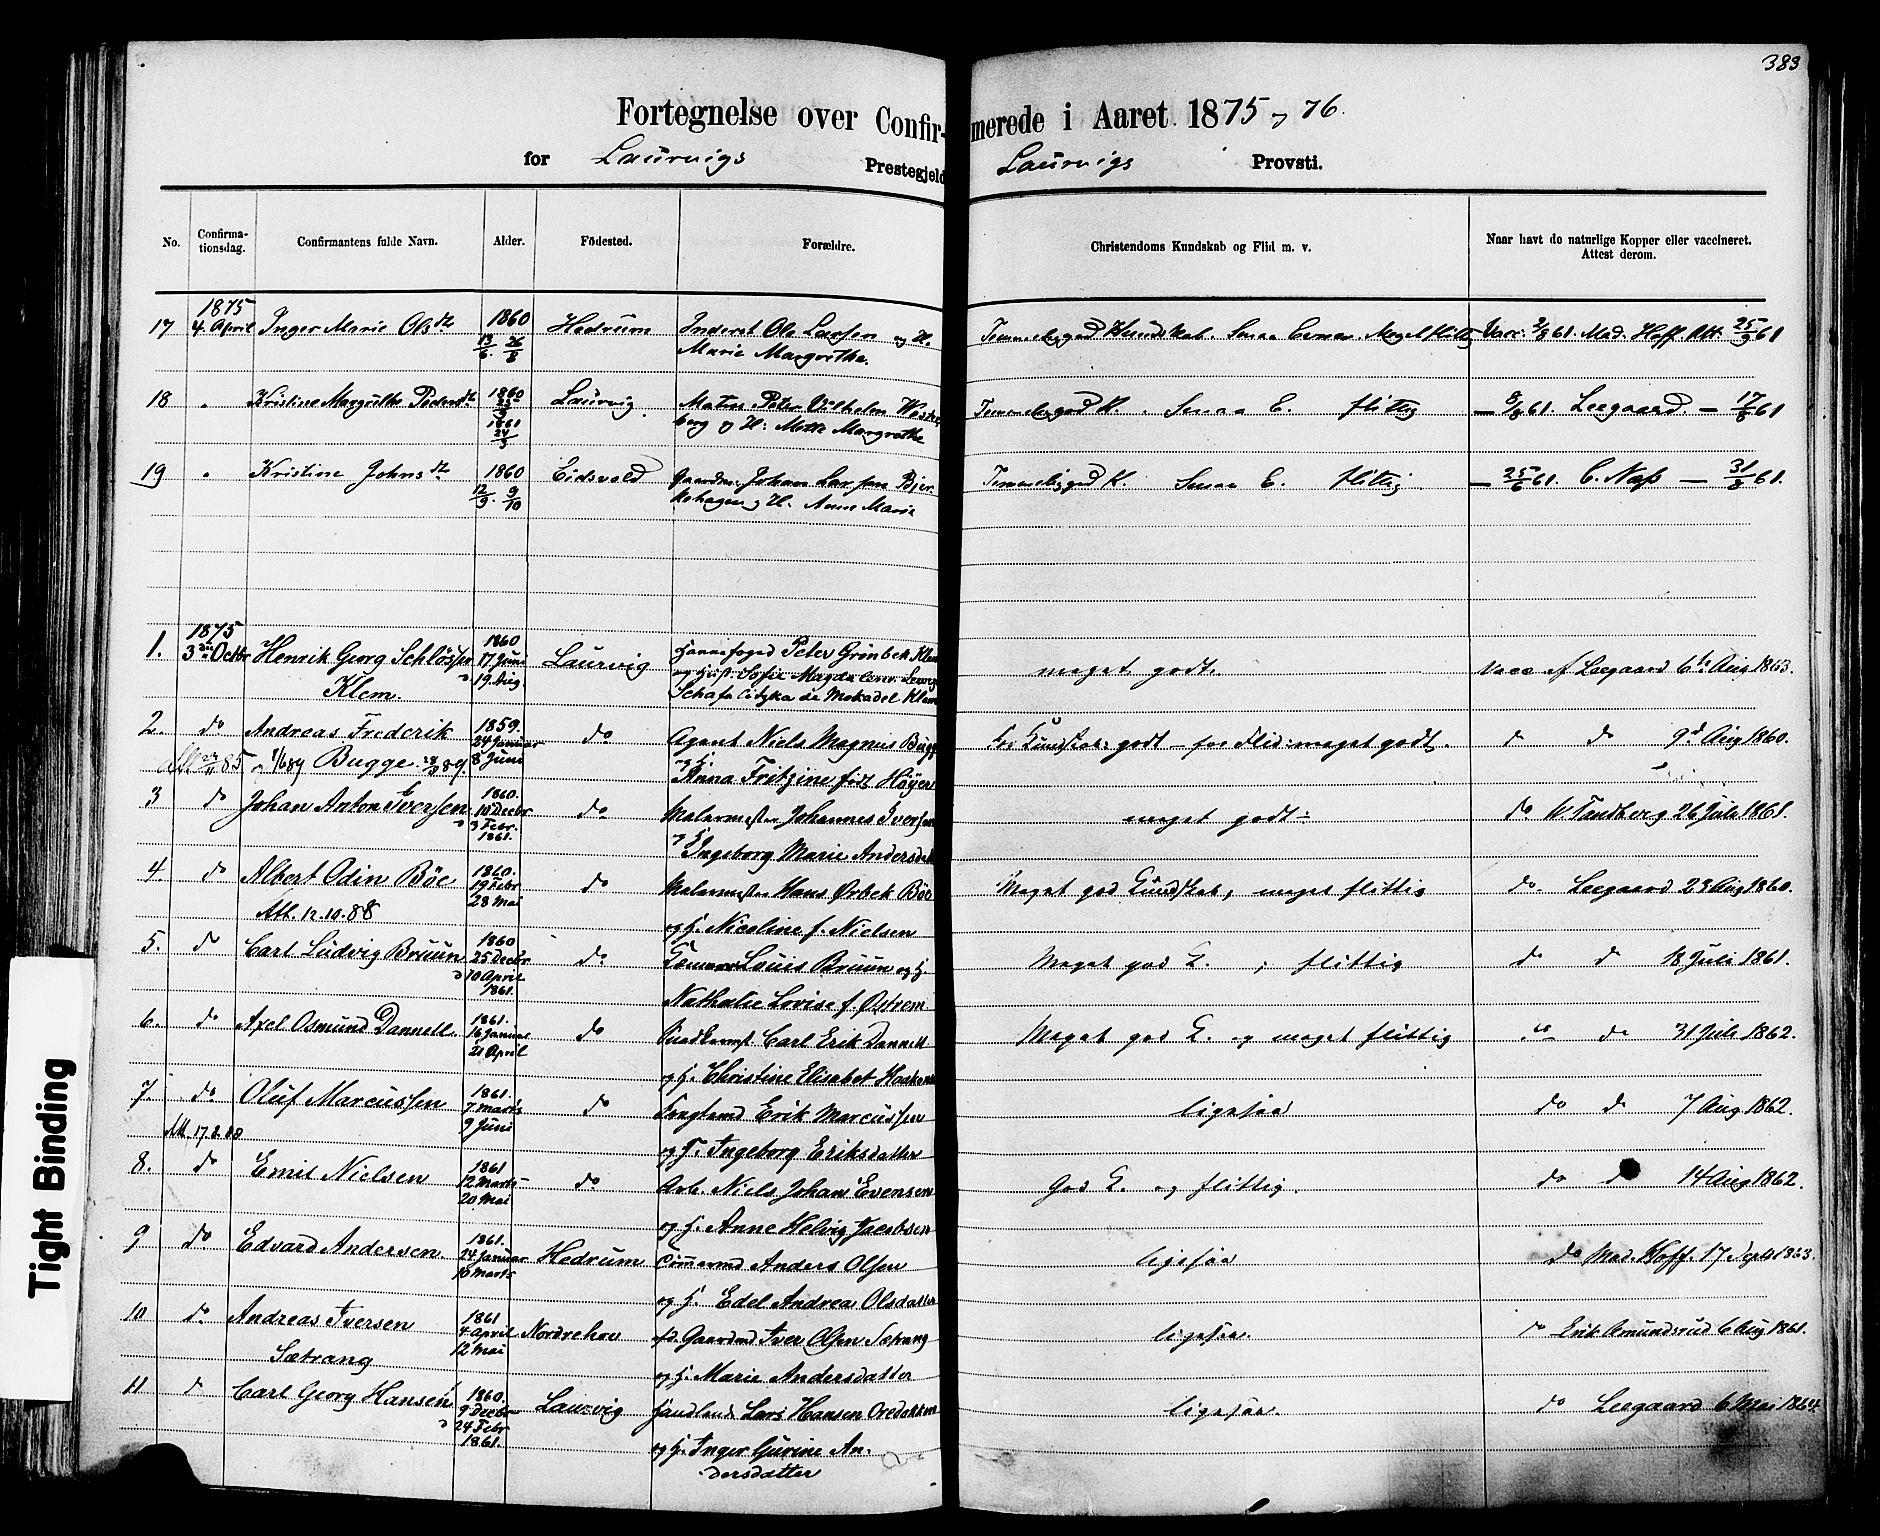 383
Fortegnelse over Confirmerede i Aaret 1875 og 76.
for Laurvigs Prestegjeld Laurvigs Provsti.
No. Confirmationsdag. Confirmantens fulde Navn. Alder. Födested. Forældre. Christendoms Kundskab og Flid m. v. Naar havt de naturlige Kopper eller vaccineret. Attest derom.
1875 1860
17 4. April Inger Marie Olsdt Hedrum Inderst Ole Larsen og H. Temmelig god Kundskab. Smaa Evner. Meget flittig Vacc. 3/8 61. Mad. Hoff. Att. 25/9 61
13/6. 26/8 Marie Margrethe.
18 " Kristine Margrethe Pedersdt 1860 Laurvig Matros Peter Vilhelm Wester Temmelig god K. Smaa E. flittig — 9/8 61. Leegaard. — 17/8 61
1861 berg og H: Mette Margrethe
19 " Kristine Johnsdt 1860 Eidsvold Gaardm. Johan Larsen Bjer Temmelig god K. Smaa E. flittig — 25/6 61. C. Næss — 31/8 61.
12/9. 9/10 kehagen og H. Anne Marie
1875 1860
1. 3die Octbr Henrik Georg Schlösser 17 Juni Laurvig Havnefoged Peter Grönbek Klem meget godt. Vacc af Leegaard 6te Aug 1863.
Klem. 19 Aug. og Hust: Sofie Magdalene
Klem
2. do Andreas Frederik 1859. do Agent Niels Magnus Bugge for Kundskab: godt – for Flid: meget godt. d d 9d Aug 1860.
Bugge 24 Januar 8 Juni og H. Anna Fritzine födt Höyer
3 do Johan Anton Iversen 1860. 10 Decbr do Malermester Johannes Iversen meget godt – do W Tandberg 26 Juli 1861.
3 Febr. 1861. og H. Ingeborg Marie Andersdat
4. do Albert Odin Böe 1860. 19 Febr do Malermester Hans Ørbek Böe Meget god Kundskab, meget flittig do. Leegaard 23 Aug 1860.
Att. 12.10.88 28 Mai og H. Nicoline f. Nielsen
5. do Carl Ludvig Bruun 1860 25 Decbr do Louis Bruun og H. Meget god K. ; flittig do d 18 Juli 1861.
10 April 1861. Nathalie Lovise f. Østrem
6. do Axel Osmund Dannell 1861. 16 Januar do Carl Erik Dannell Meget god K. og meget flittig do do 31 Juli 1862.
21 April og H. Christine Elisabet
7. do Oluf Marcussen 1861. 7 Marts do Erik Marcussen ligesaa do do 7 Aug 1862.
Att. 17.2.88 9 Juni og H. Ingeborg Eriksdatter
8. do Emil Nielsen 1861 12 Marts do Arb. Niels Johan Evensen God K. og flittig. do do 14 Aug 1862.
20 Mai og H. Anne Helvig Jacobsen
9 do Edvard Andersen 1861. 24 Januar Hedrum Tömmermd Anders Olsen ligesaa do Mad. Hoff. 17 Sept 1863.
16 Marts og H. Edel Andrea Olsdatter
10 do Andreas Iversen 1861 4 April Norderhov Gaardmd Iver Olsen Sætrang ligesaa. do Erik Amundsrud 6 Aug 1861.
Sætrang 12 Mai og H. Marie Andersdatter
11 do Carl Georg Hansen 1860. 9 Decbr Laurvig Handlende Lars Hansen ligesaa. do Leegaard 6 Mai 1864.
24 Febr 1861. og H. Inger Gurine An-
dersdatter
Tight Binding